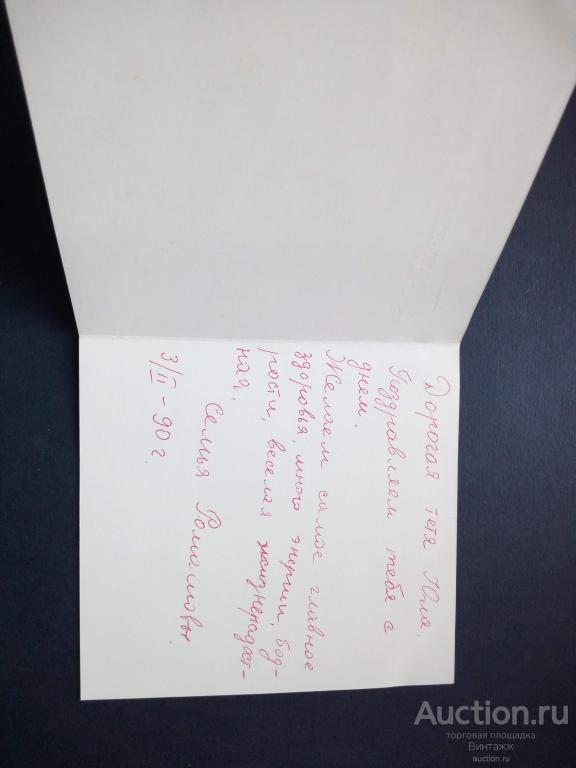 Дорогая тетя Юля.
Поздравляем тебя с
днем.
Желаем самое главное
здоровья, много энергии, бод-
рости, веселая жизнерадост-
ная.
Семья Ромашовы.
3/II-90 г.
Auction.ru
торговая площадка
Винтажж
auction.ru